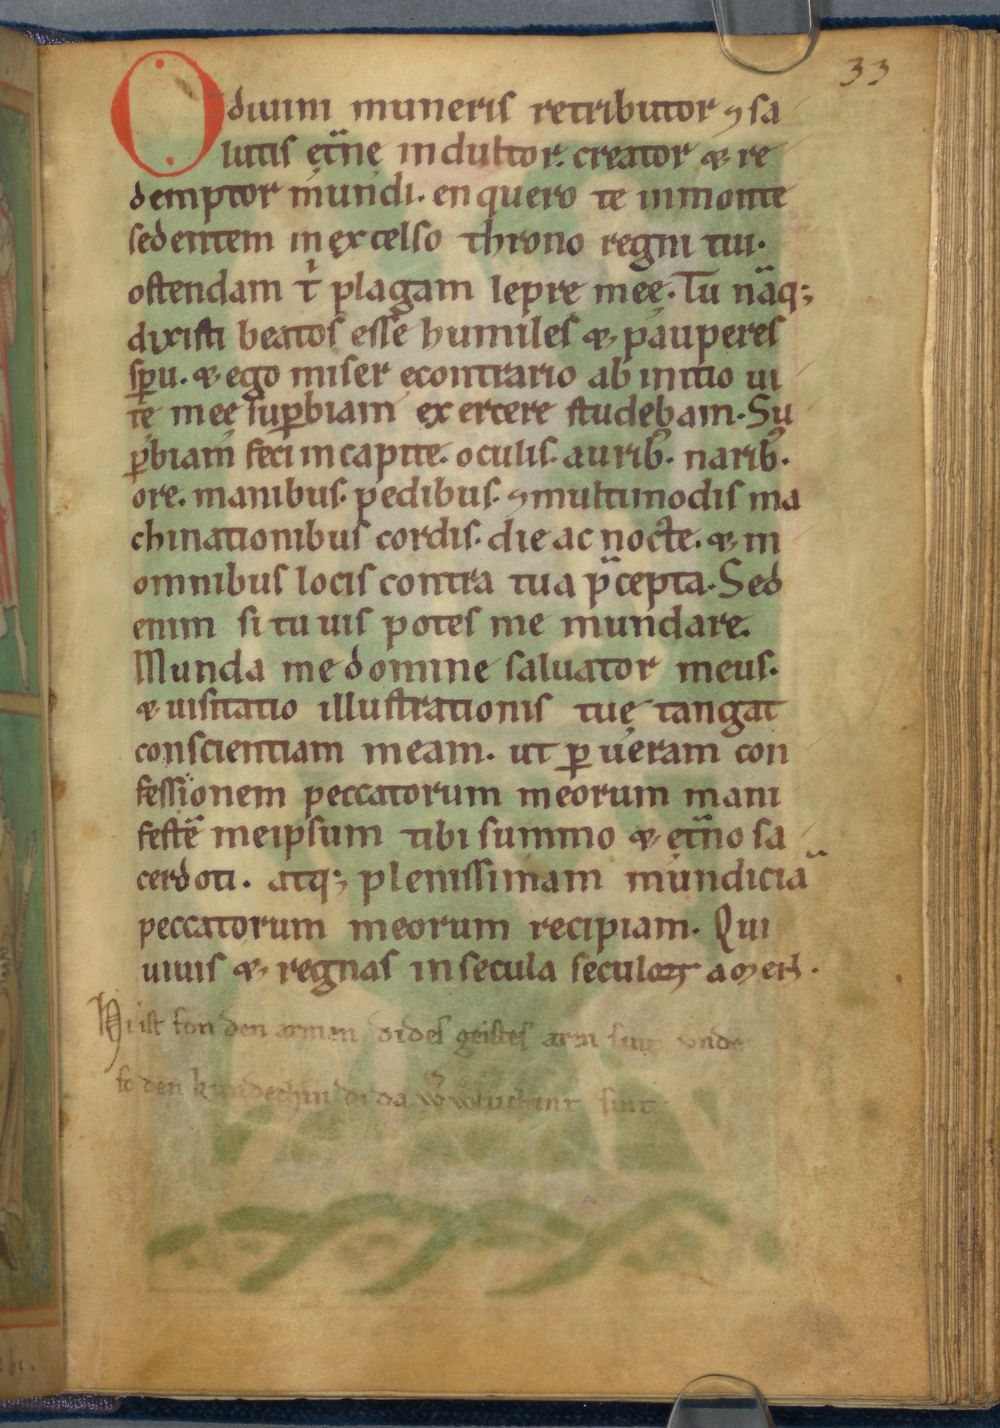 33
O diuini muneris retributor ⁊ sa
lutis et̄ne indultor. creator & re
demptor mundi. en quero te in monte
sedentem in excelso throno regni tui.
ostendam tⁱ plagam lepre meę. Tu nāq;
dixisti beatos esse humiles & pauperes
sp̄u. & ego miser econtrario ab initio ui
te meę suꝑbiam exercere studebam. Su
ꝑbiam feci in capite. oculis. aurib;. narib;.
ore. manibus. pedibus. ⁊ multimodis ma
chinationibus cordis. die ac nocte. & in
omnibus locis contra tua p̄cepta. Sed
enim si tu uis potes me mundare.
Munda me domine saluator meus.
& uisitatio illustrationis tuę tangat
conscientiam meam. ut ꝑ ueram con
fessionem peccatorum meorum mani
festē meipsum tibi summo & et̄no sa
cerdoti. atq; plenissimam mundiciā
peccatorum meorum recipiam. Qui
uiuis & regnas in secula seculoꝝ amen.
Hi ist fon den armen di des geistes arm sint unde
fo den kindechin di da sint